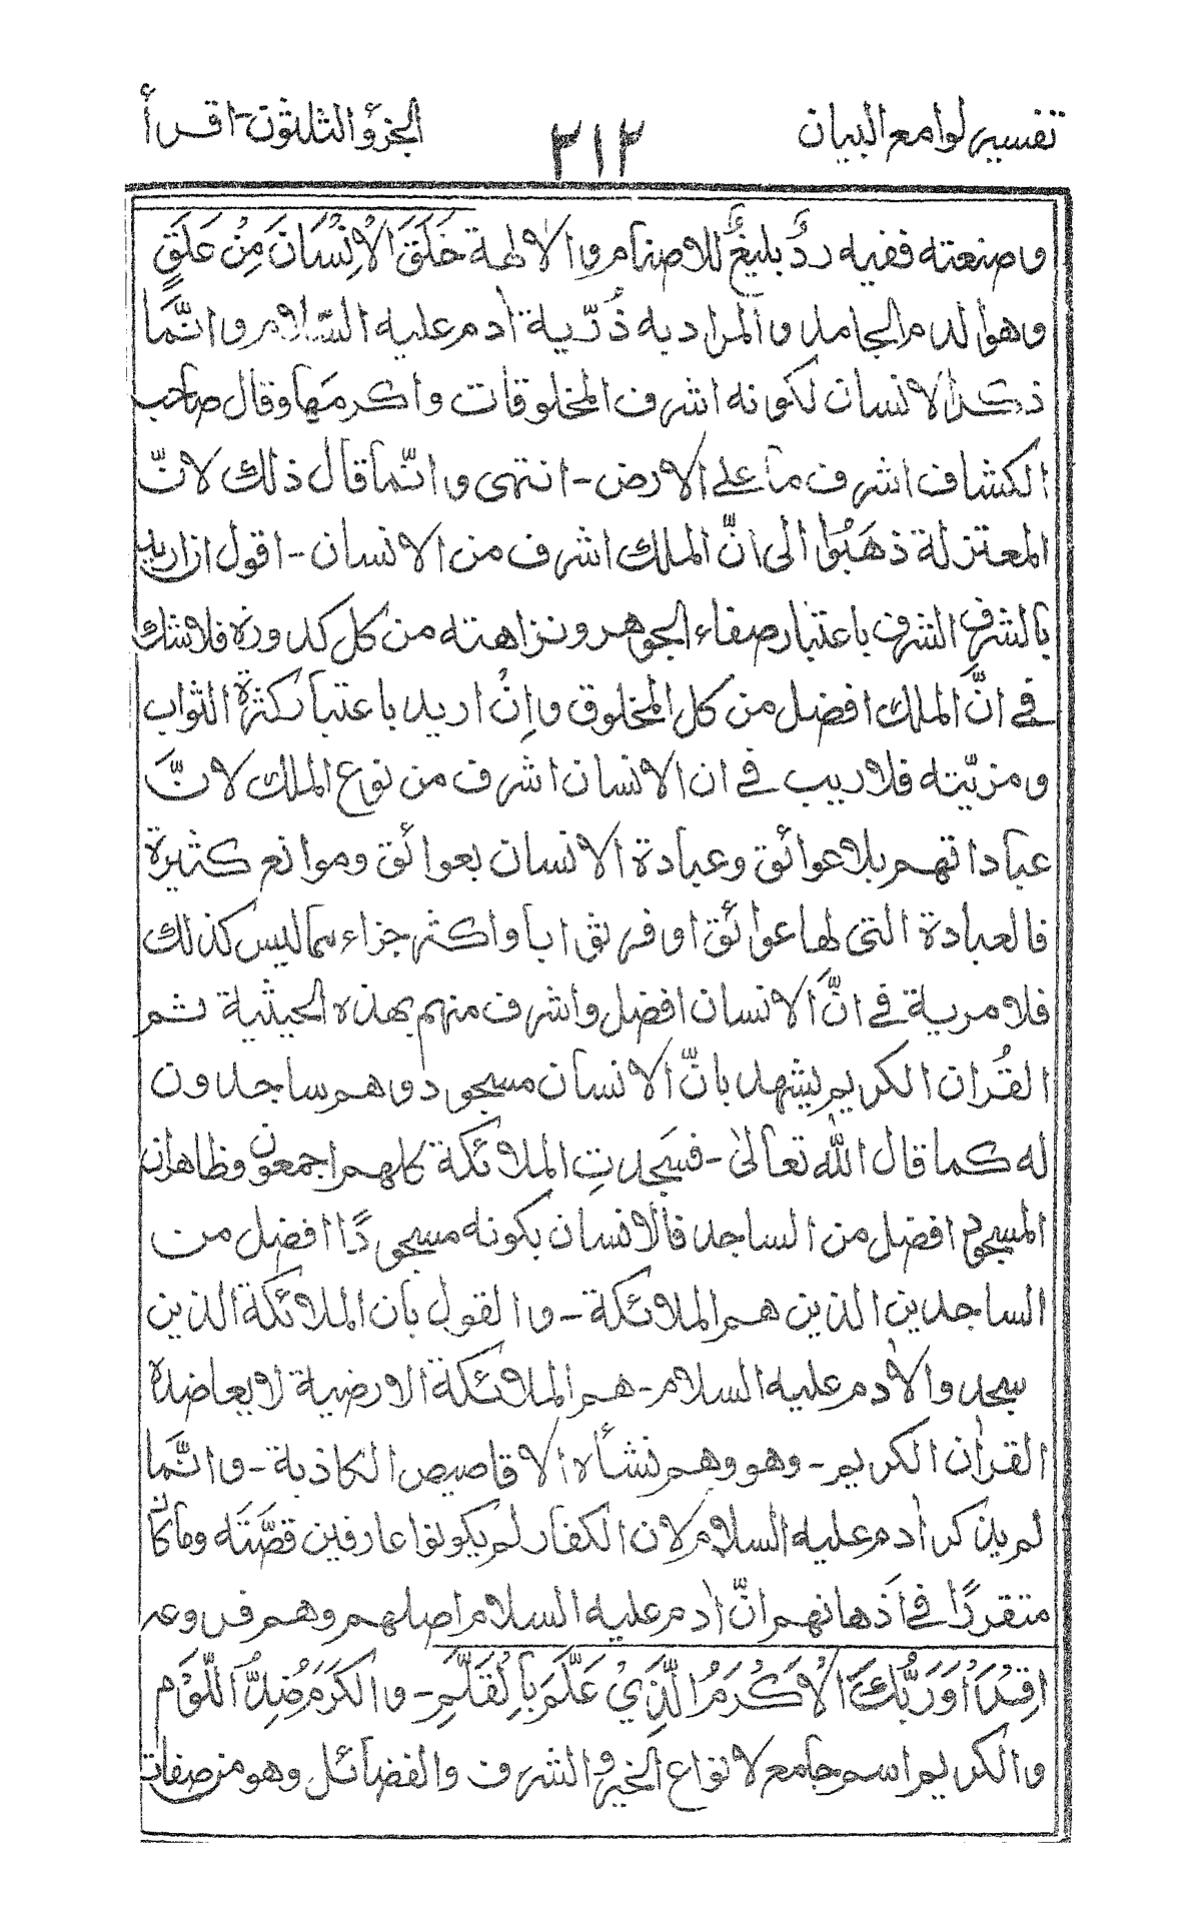 تفسير لوامع البيان
٣١٢
الجزؤ الثلثون - اقرأ
وصنعته ففيه ردٌّ بليغٌ للاصنام والالهة خَلَقَ الْاِنْسَانَ مِنْ عَلَقٍ
وهو الدم الجامد والمراد به ذُرّية اٰدم عليه السّلام وانّما
ذكر الانسان لكونه اشرف المخلوقات واكرمها وقال صاحب
الكشاف اشرف ما على الارض - انتهى وانّما قال ذلك لانّ
المعتزلة ذهَبُوا الى انّ الملك اشرف من الانسان - اقول ان اريد
بالشرف الشرف باعتبار صفاء الجوهر ونزاهته من كل كدورة فلا شك
في انّ الملك افضل من كل المخلوق واِنْ اريد باعتبار كثرة الثواب
ومزيّته فلا ريب في ان الانسان اشرف من نوع الملك لانّ
عباداتهم بلا عوائق وعبادة الانسان بعوائق وموانع كثيرة
فالعبادة التى لها عوائق اوفر ثوابا واكثر جزاء مما ليس كذلك
فلا مرية في انّ الانسان افضل واشرف منهم بهذه الحيثية ثم
القُران الكريم يشهد بانّ الانسان مسجود وهم ساجدون
له كما قال الله تعالىٰ - فسَجدتِ الملائكة كلهم اجمعون وظاهر ان
المسجود افضل من الساجد فالانسان بكونه مسجودًا افضل من
الساجدين الذين هم الملائكة - والقول بان الملائكة الذين
سجدوا لاٰدم عليه السلام - هم الملائكة الارضية لا يعاضده
القراٰن الكريم - وهو وهم نشأ من الاقاصيص الكاذبة - وانّما
لم يذكر اٰدم عليه السلام لان الكفار لم يكونوا عارفين قصّتَه وما كان
متقررًا في اَذهانهم انّ اٰدم عليه السلام اصلهم وهم فروعه
اِقْرَاْ وَرَبُّكَ الْاَكْرَمُ الَّذِيْ عَلَّمَ بِالْقَلَمِ - والكَرَمُ ضِدُّ اللّؤم
والكريم اسم جامع لانواع الخير والشرف والفضائل وهو من صفات